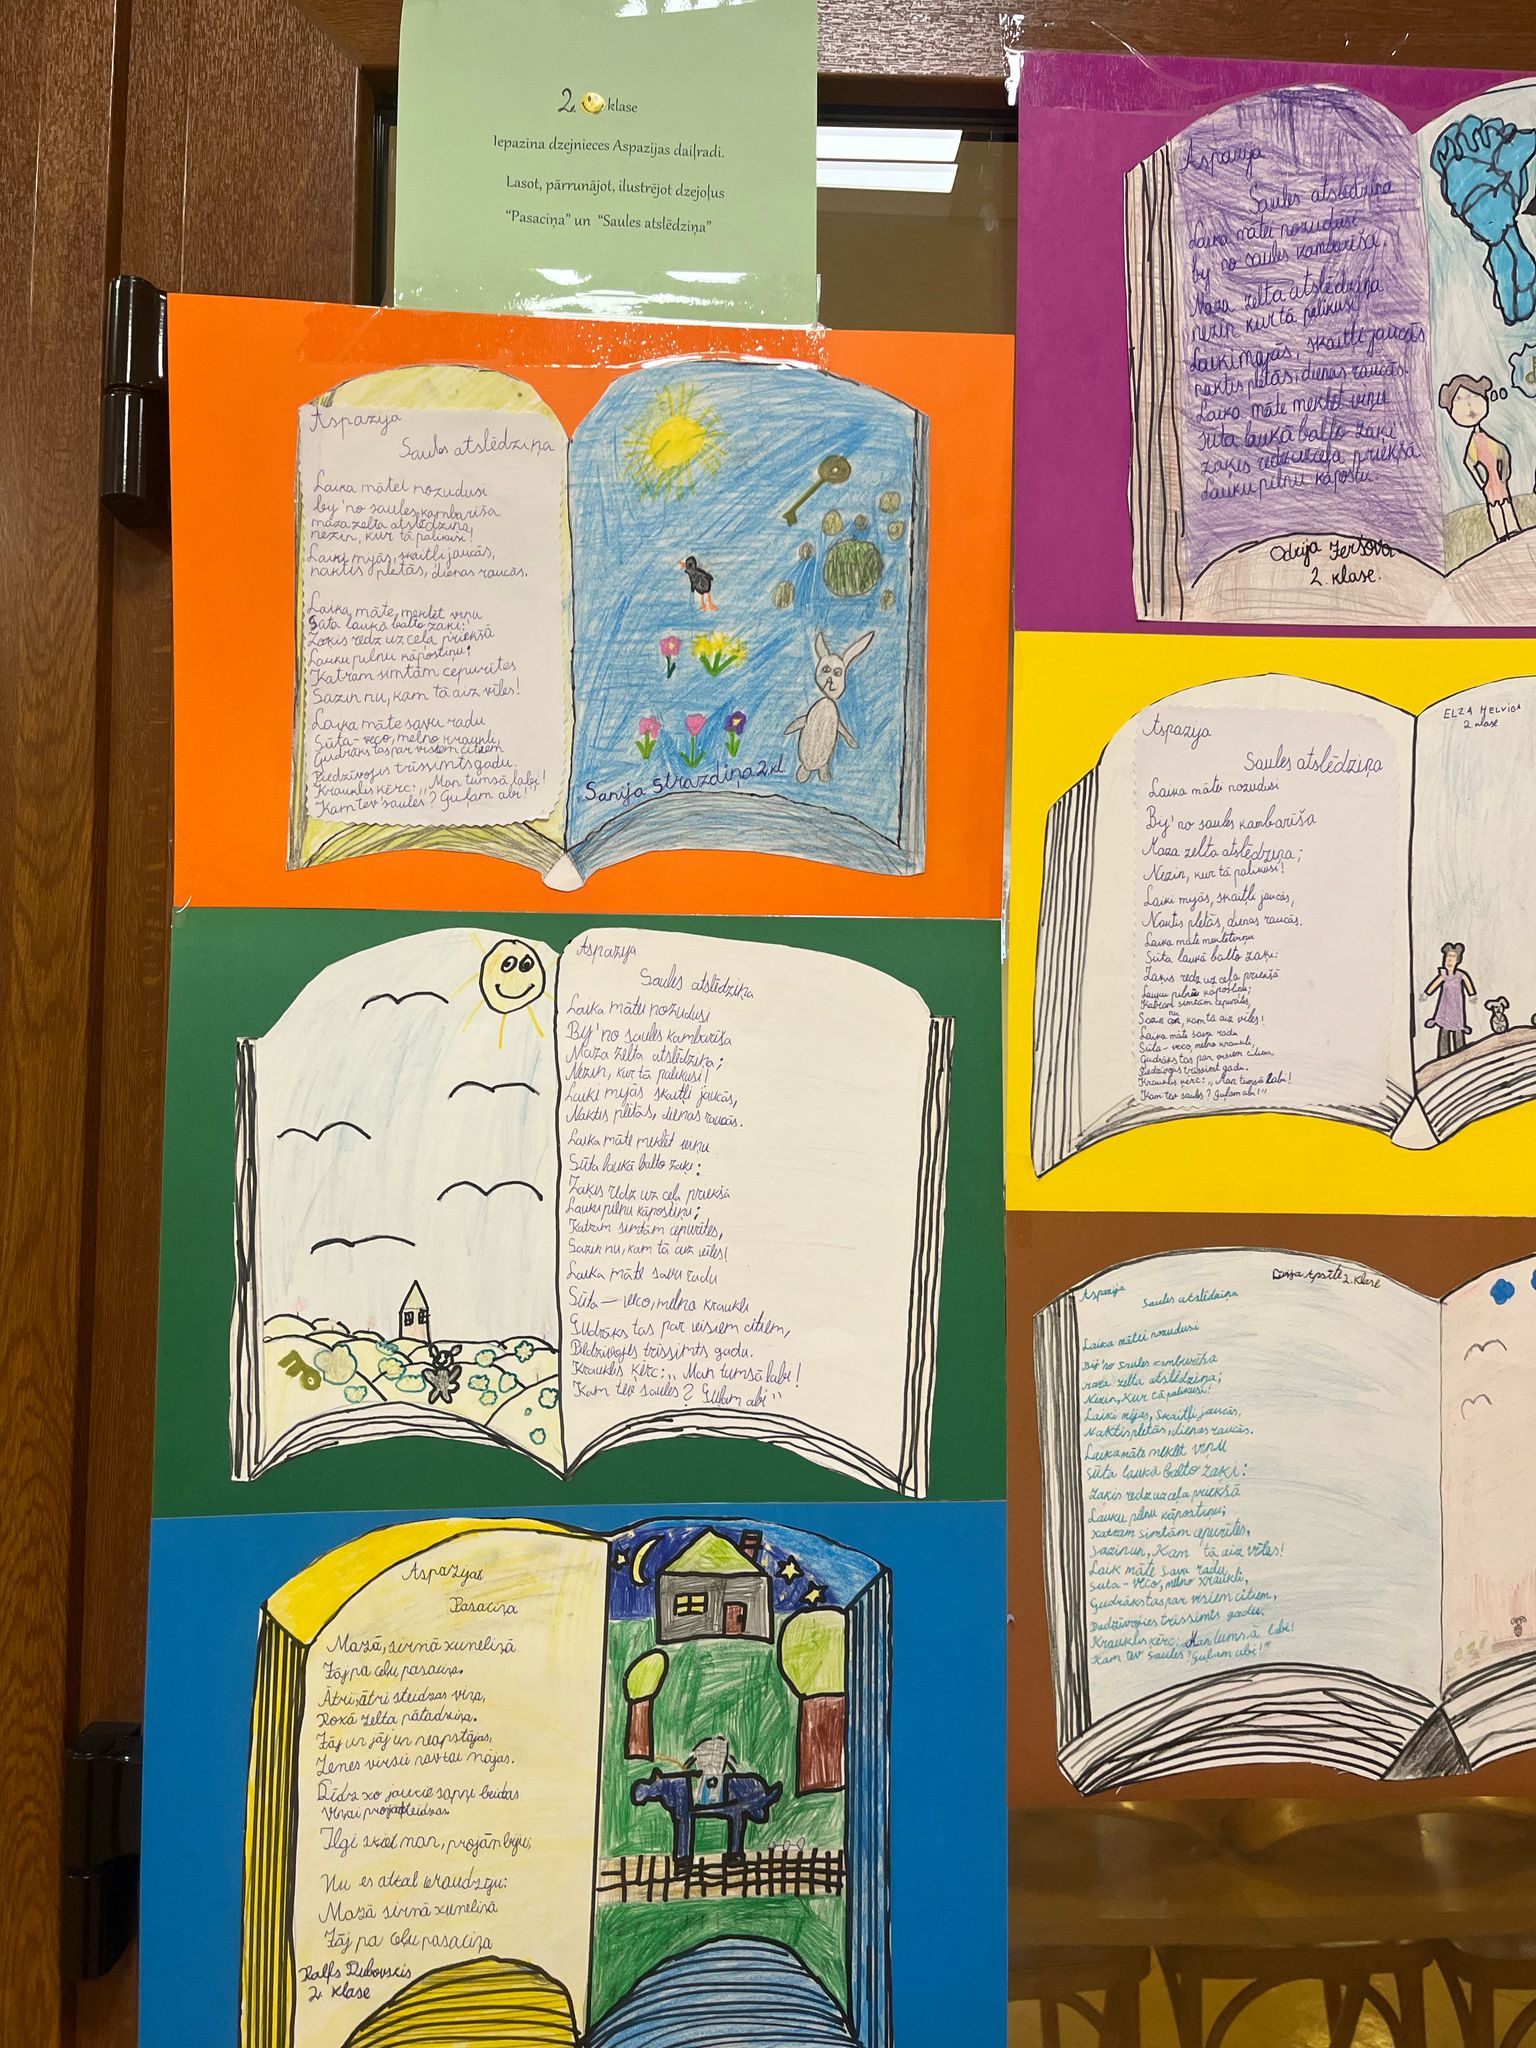 2. klase
Iepazina dzejnieces Aspazijas daiļradi.
Lasot, pārrunājot, ilustrējot dzejoļus
“Pasaciņa” un “Saules atslēdziņa”
Aspazija
Saules atslēdziņa
Laika mātei nozudusi
by' no saules kambarīša
maza zelta atslēdziņa,
nezin, kur tā palikusi!
Laiki myās, skaitļi jaucās,
naktis plētās, dienas raucās.
Laika māte, meklēt viņu
Sūta laukā balto zaķi:
Zaķis redz uz ceļa priekšā
Lauku pilnu kāpostiņu;
Katram simtām cepurītes
Sazin nu, kam tā aiz vīles!
Laika māte savu radu
Sūta - veco, melno kraukli,
Gudrāks tas par visiem citiem
Piedzīvojis trīssimts gadu.
Krauklis ķērc: „Man tumsā labi!
Kam tev saules? Guļam abi!"
Sanija Strazdiņa 2.kl
Aspazija
Saules atslēdziņa
Laika mātei nozudusi
By' no saules kambarīša
Maza zelta atslēdziņa;
Nezin, kur tā palikusi!
Laiki mijās skaitļi jaucās,
Naktis plētās, dienas raucās.
Laika māte meklēt viņu
Sūta laukā balto zaķi:
Zaķis redz uz ceļa priekšā
Lauku pilnu kāpostiņu;
Katram simtām cepurītes,
Sazin nu, kam tā aiz vīles!
Laika māte savu radu
Sūta — veco, melno kraukli
Gudrāks tas par visiem citiem,
Piedzīvojis trīssimts gadu.
Krauklis ķērc: „Man tumsā labi!
Kam tev saules? Guļam abi"
Aspazijas
Pasaciņa
Mazā, sirmā kumeliņā
Jāj pa ceļu pasaciņa.
Ātri, ātri steidzas viņa,
Rokā zelta pātadziņa.
Jāj un jāj un neapstājas,
Zemes virsū nav tai mājas.
Līdz ko jaukie sapņi beidzas
Ilgi man, projām bija;
Nu es atkal ieraudzīju:
Mazā sirmā kumeliņā
Jāj pa ceļu pasaciņa
Ralfs Dubovskis
2. klase
Aspazija
Saules atslēdziņa
Laika mātei nozudusi
by' no saules kambarīša.
Maza zelta atslēdziņa
nezin kur tā palikusi
Laiki mājās, skaitļi jaucās
naktis plētās, dienas raucās.
Laika māte meklēt viņu
sūta laukā balto zaķi
zaķis redz uz ceļa priekšā
Lauku pilnu kāpostu.
Odrija Ieršova
2. klase.
ELZA HELVIGA
2 klase
Aspazija
Saules atslēdziņa
Laika mātei nozudusi
By' no saules kambarīša
Maza zelta atslēdziņa;
Nezin, kur tā palikusi!
Laiki mijās, skaitļi jaucās,
Naktis plētās, dienas raucās.
Laika māte meklēt viņu
Sūta laukā balto zaķi:
Zaķis redz uz ceļa priekšā
Lauku pilnu kāpostiņu;
Katram simtām cepurītes,
nu, kam tā aiz vīles!
Laika māte savu radu
Sūta — veco, melno kraukli,
Gudrāks tas par visiem citiem,
Piedzīvojis trīssimt gadu.
Krauklis ķērc: „Man tumsā labi!
Kam tev saules? Guļam abi!"
Apsīte 2. klase
Aspazija
Saules atslēdziņa
Laika mātei nozudusi
By' no saules kambarīša
maza zelta atslēdziņa;
Nezin, kur tā palikusi!
Laiki mijās, skaitļi jaucās,
Naktis plētās, dienas raucās.
Laika māte meklēt viņu
Sūta laukā balto zaķi:
Zaķis redz uz ceļa priekšā
Lauku pilnu kāpostiņu;
Katram simtām cepurītes,
Sazin un, Kam tā aiz vīles!
Laik māte savu radu
Sūta - veco, melno kraukli,
Gudrāks tas par visiem citiem,
Dadzīvojies trīssimts gadu.
Krauklis ķērc: „Man tumsā labi!
Kam tev saules? Guļam abi!"